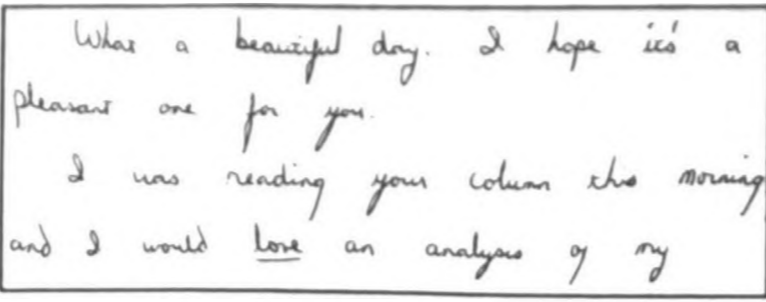 What a beautiful day. I hope it's a
pleasant one for you.
I was reading your column this morning
and I would love an analysis of my